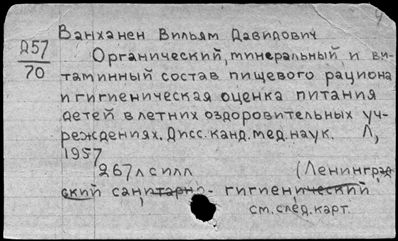 4
Ванханен Вильям Давидович
Д57
70
Органический, минеральный и ви-
таминный состав пищевого рациона
и гигиеническая оценка питания
детей в летних оздоровительных уч-
реждениях. Дисс. канд. мед. наук. Л,
1957
267 л с илл (Ленинград
ский санитарно- гигиенический
см. след. карт.